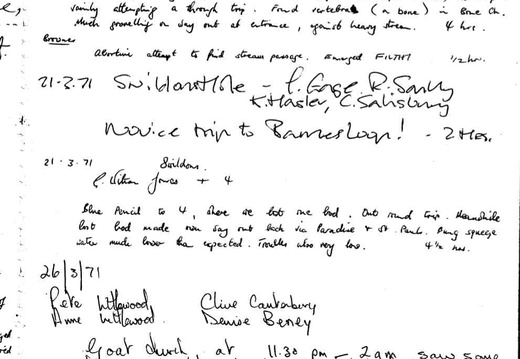 vainly attempting a through trip. Found vertebrat (a bone) in Bone Ch.
Much grovelling on way out at entrance, against heavy stream. 4 hrs.
Browns
Abortive attempt to find stream passage. Emerged FILTHY 1/2 hr.
21-3.71 Swildons Hole - P. Gage, R. Sandy
K. Hasler, C. Salisbury
Novice trip to Barnes Loop! - 2 Hrs.
21.3.71 Swildons.
+ 4
Blue Pencil to 4, where we lost one bod. Out round trip. Meanwhile
lost bod made own way out back via Paradise + St. Pauls. Dung squeeze
water much lower than expected. Troubles also very low. 4 1/2 hrs.
26/3/71
Pete Littlewood, Clive Canterbury
Anne Littlewood Denise Beney
Goat church, at 11.30 pm - 2 am